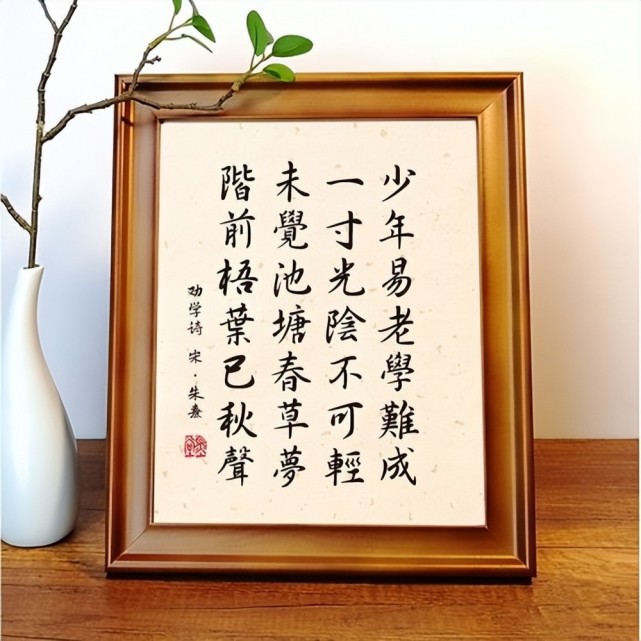 少年易老學難成
一寸光陰不可輕
未覺池塘春草夢
階前梧葉已秋聲
劝学诗 宋·朱熹